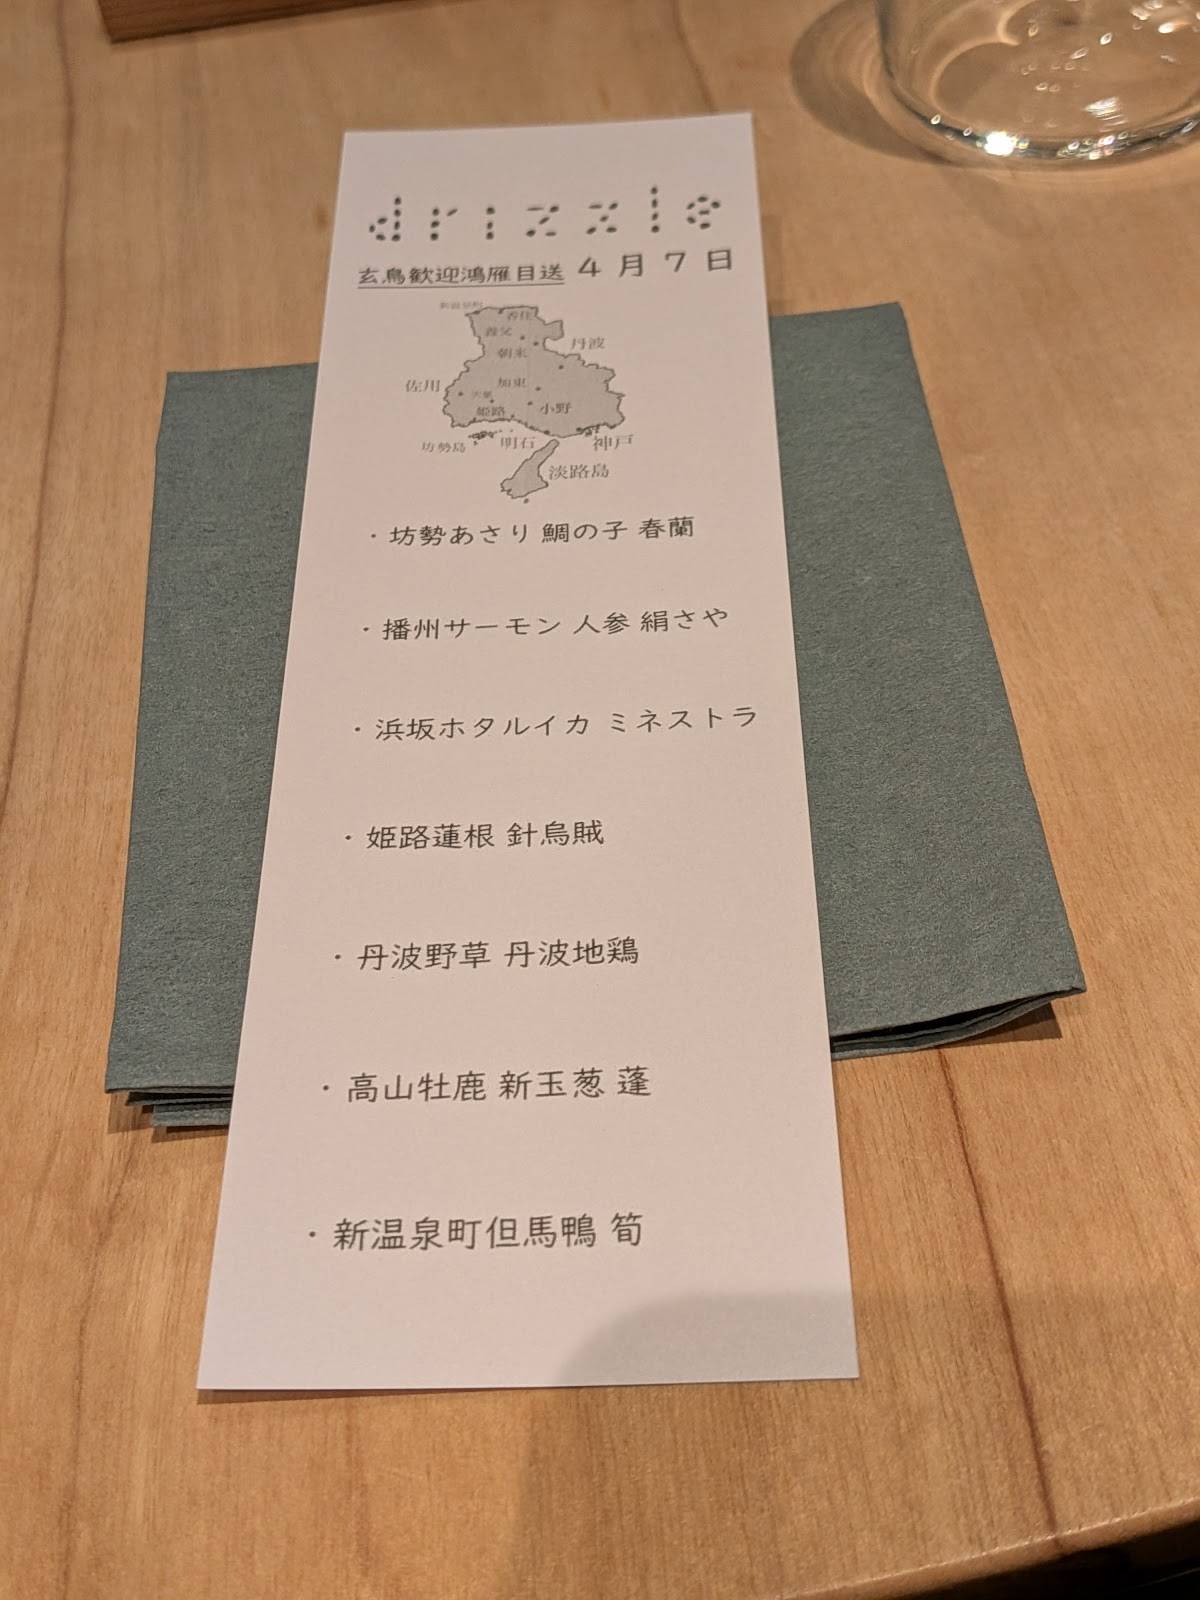 drizzle
玄鳥歓迎鴻雁目送 4月7日
香住
養父
朝来
丹波
佐用
加東
姫路
小野
坊勢島
明石
神戸
淡路島
・坊勢あさり 鯛の子 春蘭
・播州サーモン 人参 絹さや
・浜坂ホタルイカ ミネストラ
・姫路蓮根 針烏賊
・丹波野草 丹波地鶏
・高山牡鹿 新玉葱 蓬
・新温泉町但馬鴨 筍